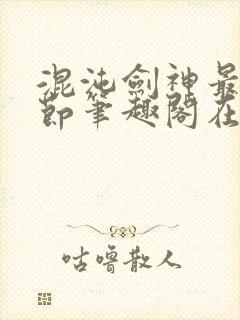 混沌劍神最
節筆趣閣在
咕嚕散人